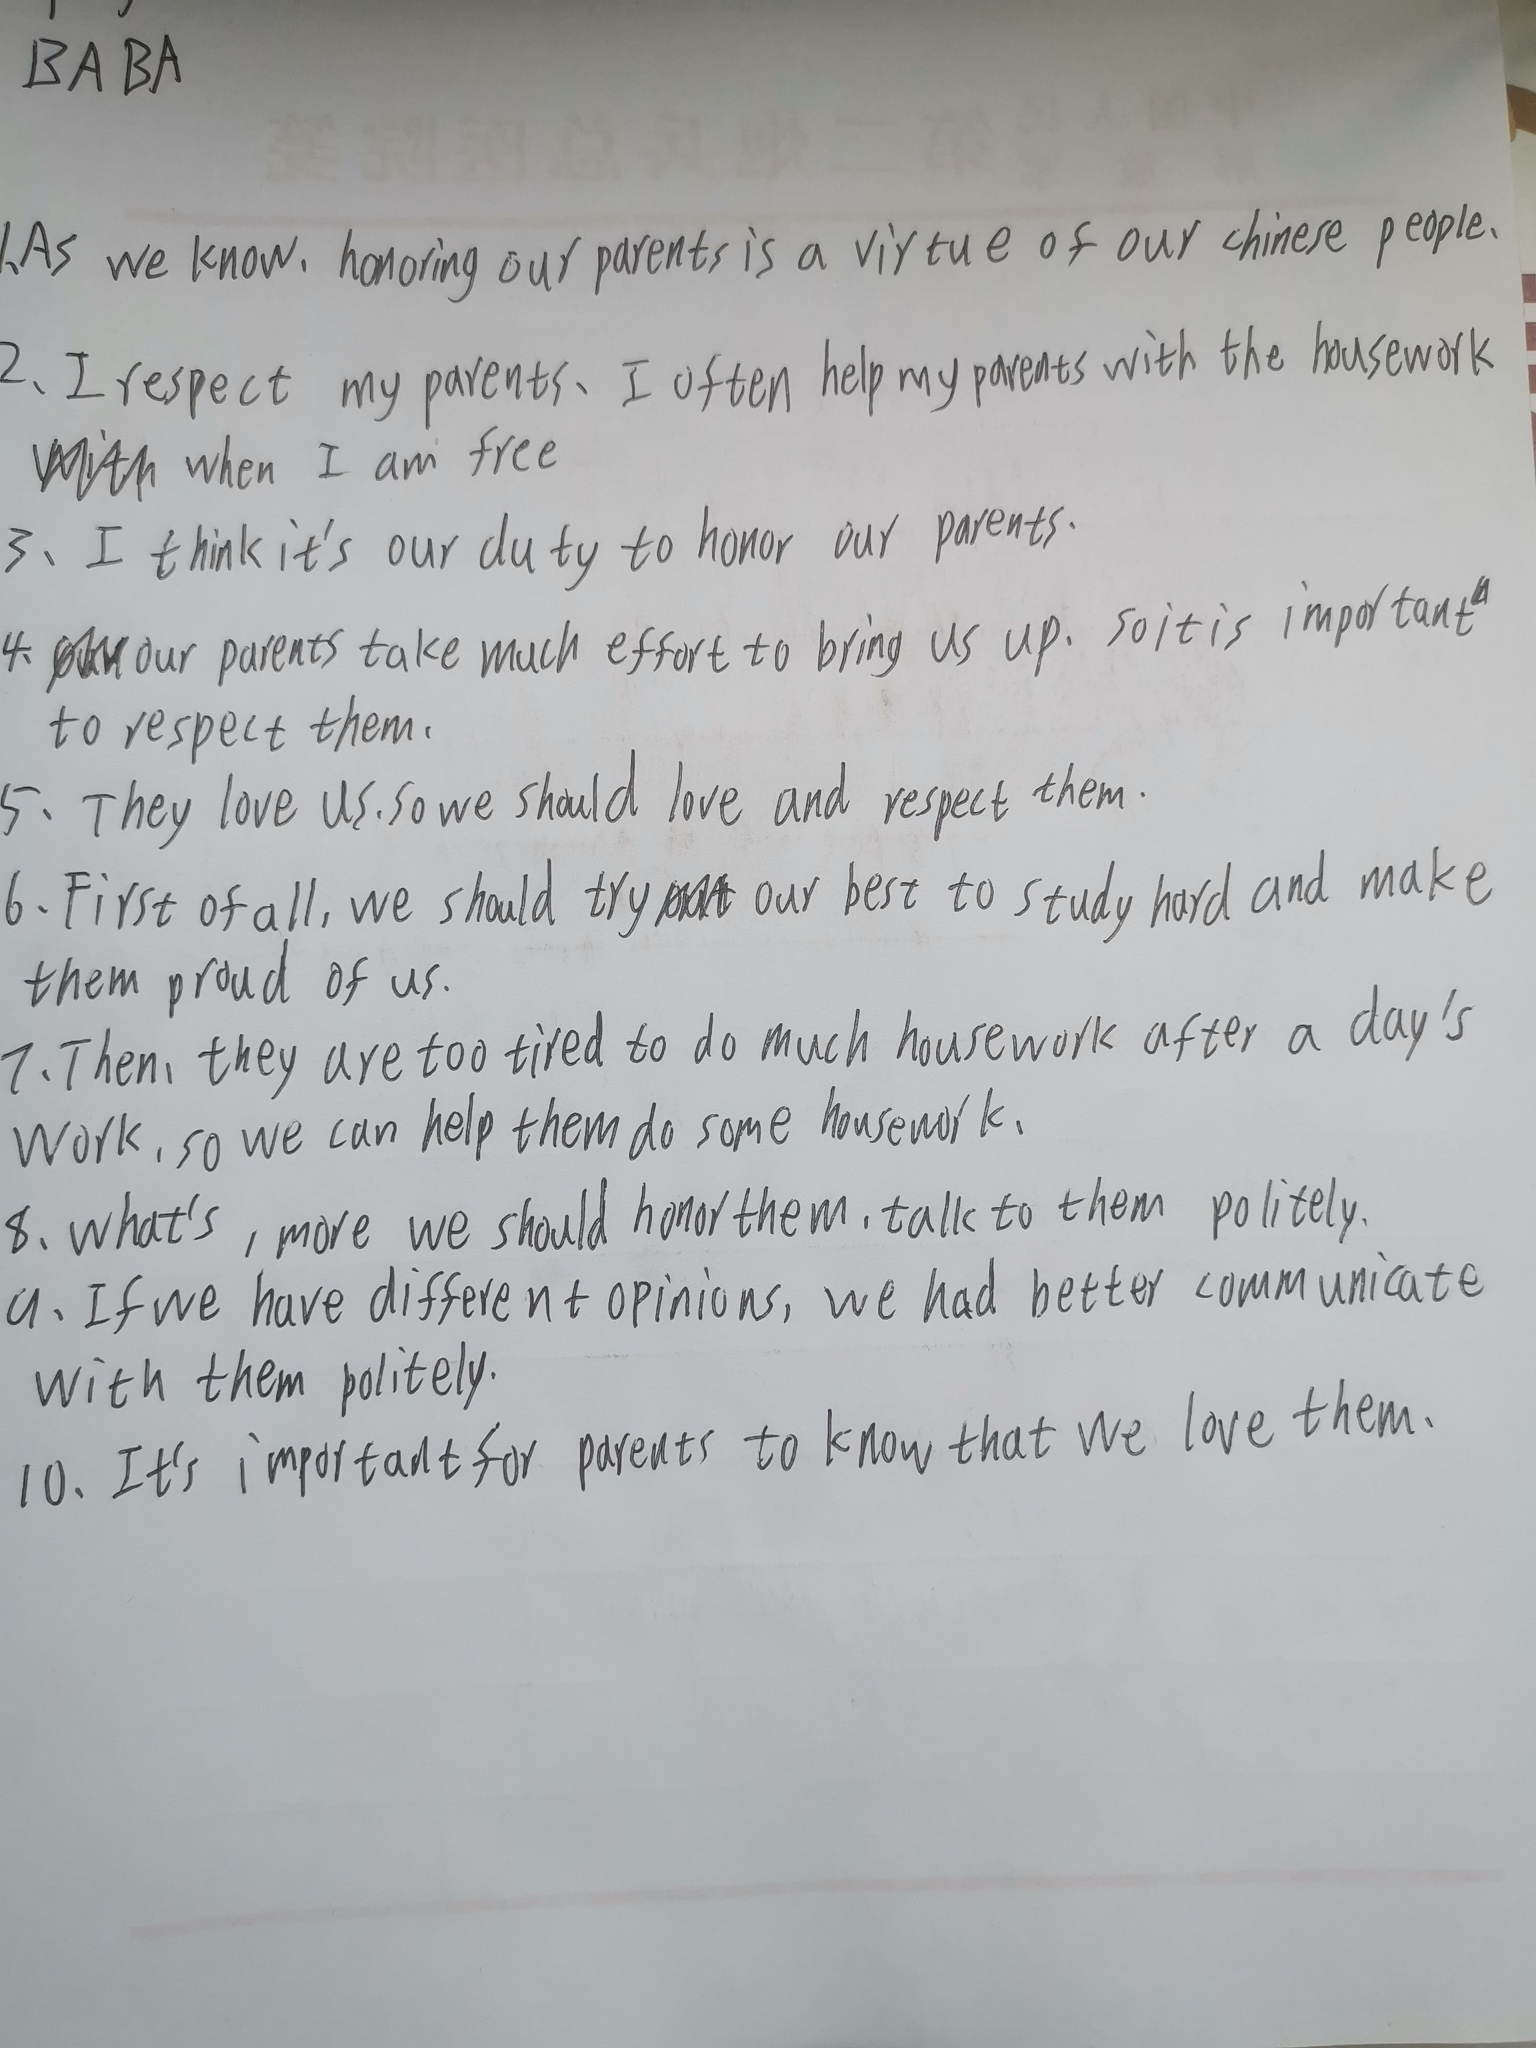 BABA
1.As we know, honoring our parents is a virtue of our chinese people.
2、I respect my parents、I often help my parents with the housework
when I am free
3、I think it's our duty to honor our parents.
4. our parents take much effort to bring us up. so it is important
to respect them.
5、They love us. so we should love and respect them.
6.First of all, we should try our best to study hard and make
them proud of us.
7.Then, they are too tired to do much housework after a day's
work, so we can help them do some housework.
8、what's, more we should honor them, talk to them politely.
9、If we have different opinions, we had better communicate
with them politely.
10、It's important for parents to know that we love them.